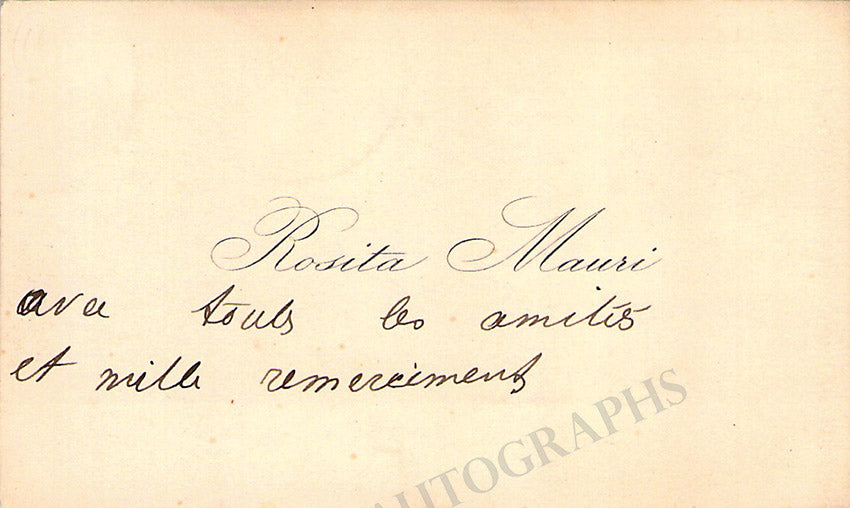 Rosita Mauri
avec touts les amitiés
et mille remerciments
AUTOGRAPHS